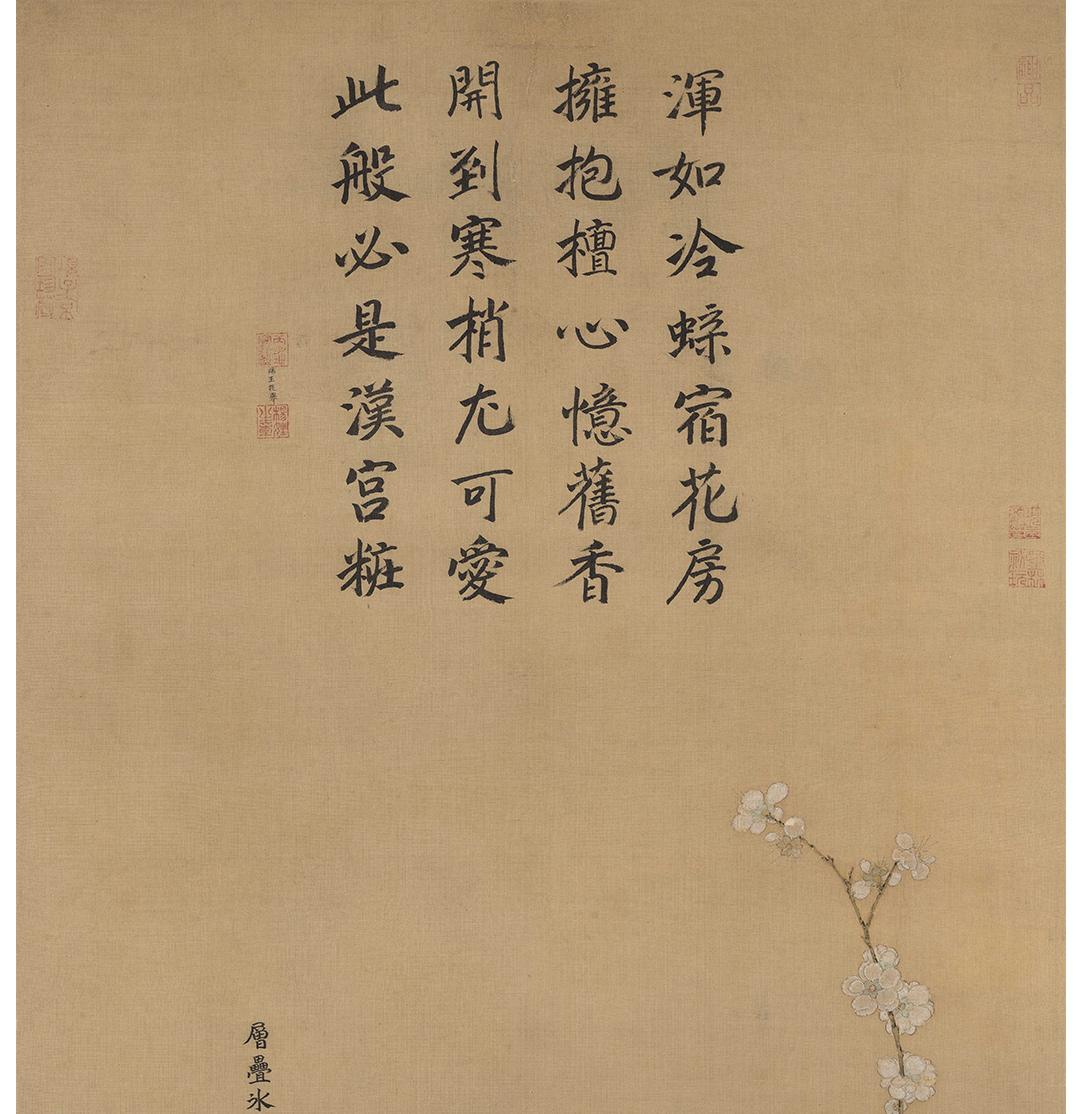 渾如冷蝶宿花房
擁抱檀心憶舊香
開到寒梢尤可愛
此般必是漢宫粧
賜王提舉
層疊冰